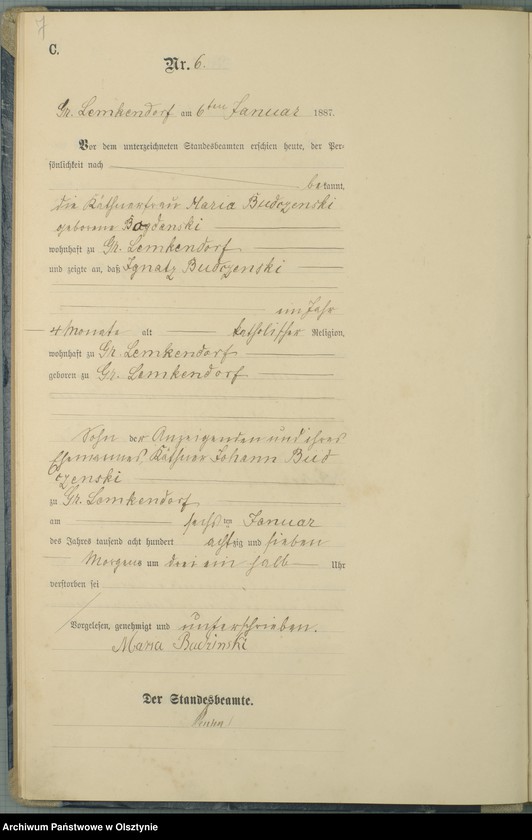 7
C.
Nr. 6.
Gr. Lemkendorf am 6ten Januar 1887.
Vor dem unterzeichneten Standesbeamten erschien heute, der Per-
sönlichkeit nach
bekannt,
die Käthnerfrau Maria Budczenski
geborene Bogdanski
wohnhaft zu Gr. Lemkendorf
und zeigte an, daß Ignatz Budczenski
ein Jahr
4 Monate alt katholischer Religion,
wohnhaft zu Gr. Lemkendorf
geboren zu Gr. Lemkendorf
Sohn der Anzeigenden und ihres
Ehemannes, Käthner Johann Bud
czenski
zu Gr. Lemkendorf
am sechsten Januar
des Jahres tausend acht hundert achtzig und sieben
Morgens um drei ein halb Uhr
verstorben sei
Vorgelesen, genehmigt und unterschrieben.
Maria Budzinski
Der Standesbeamte.
Archiwum Państwowe w Olsztynie